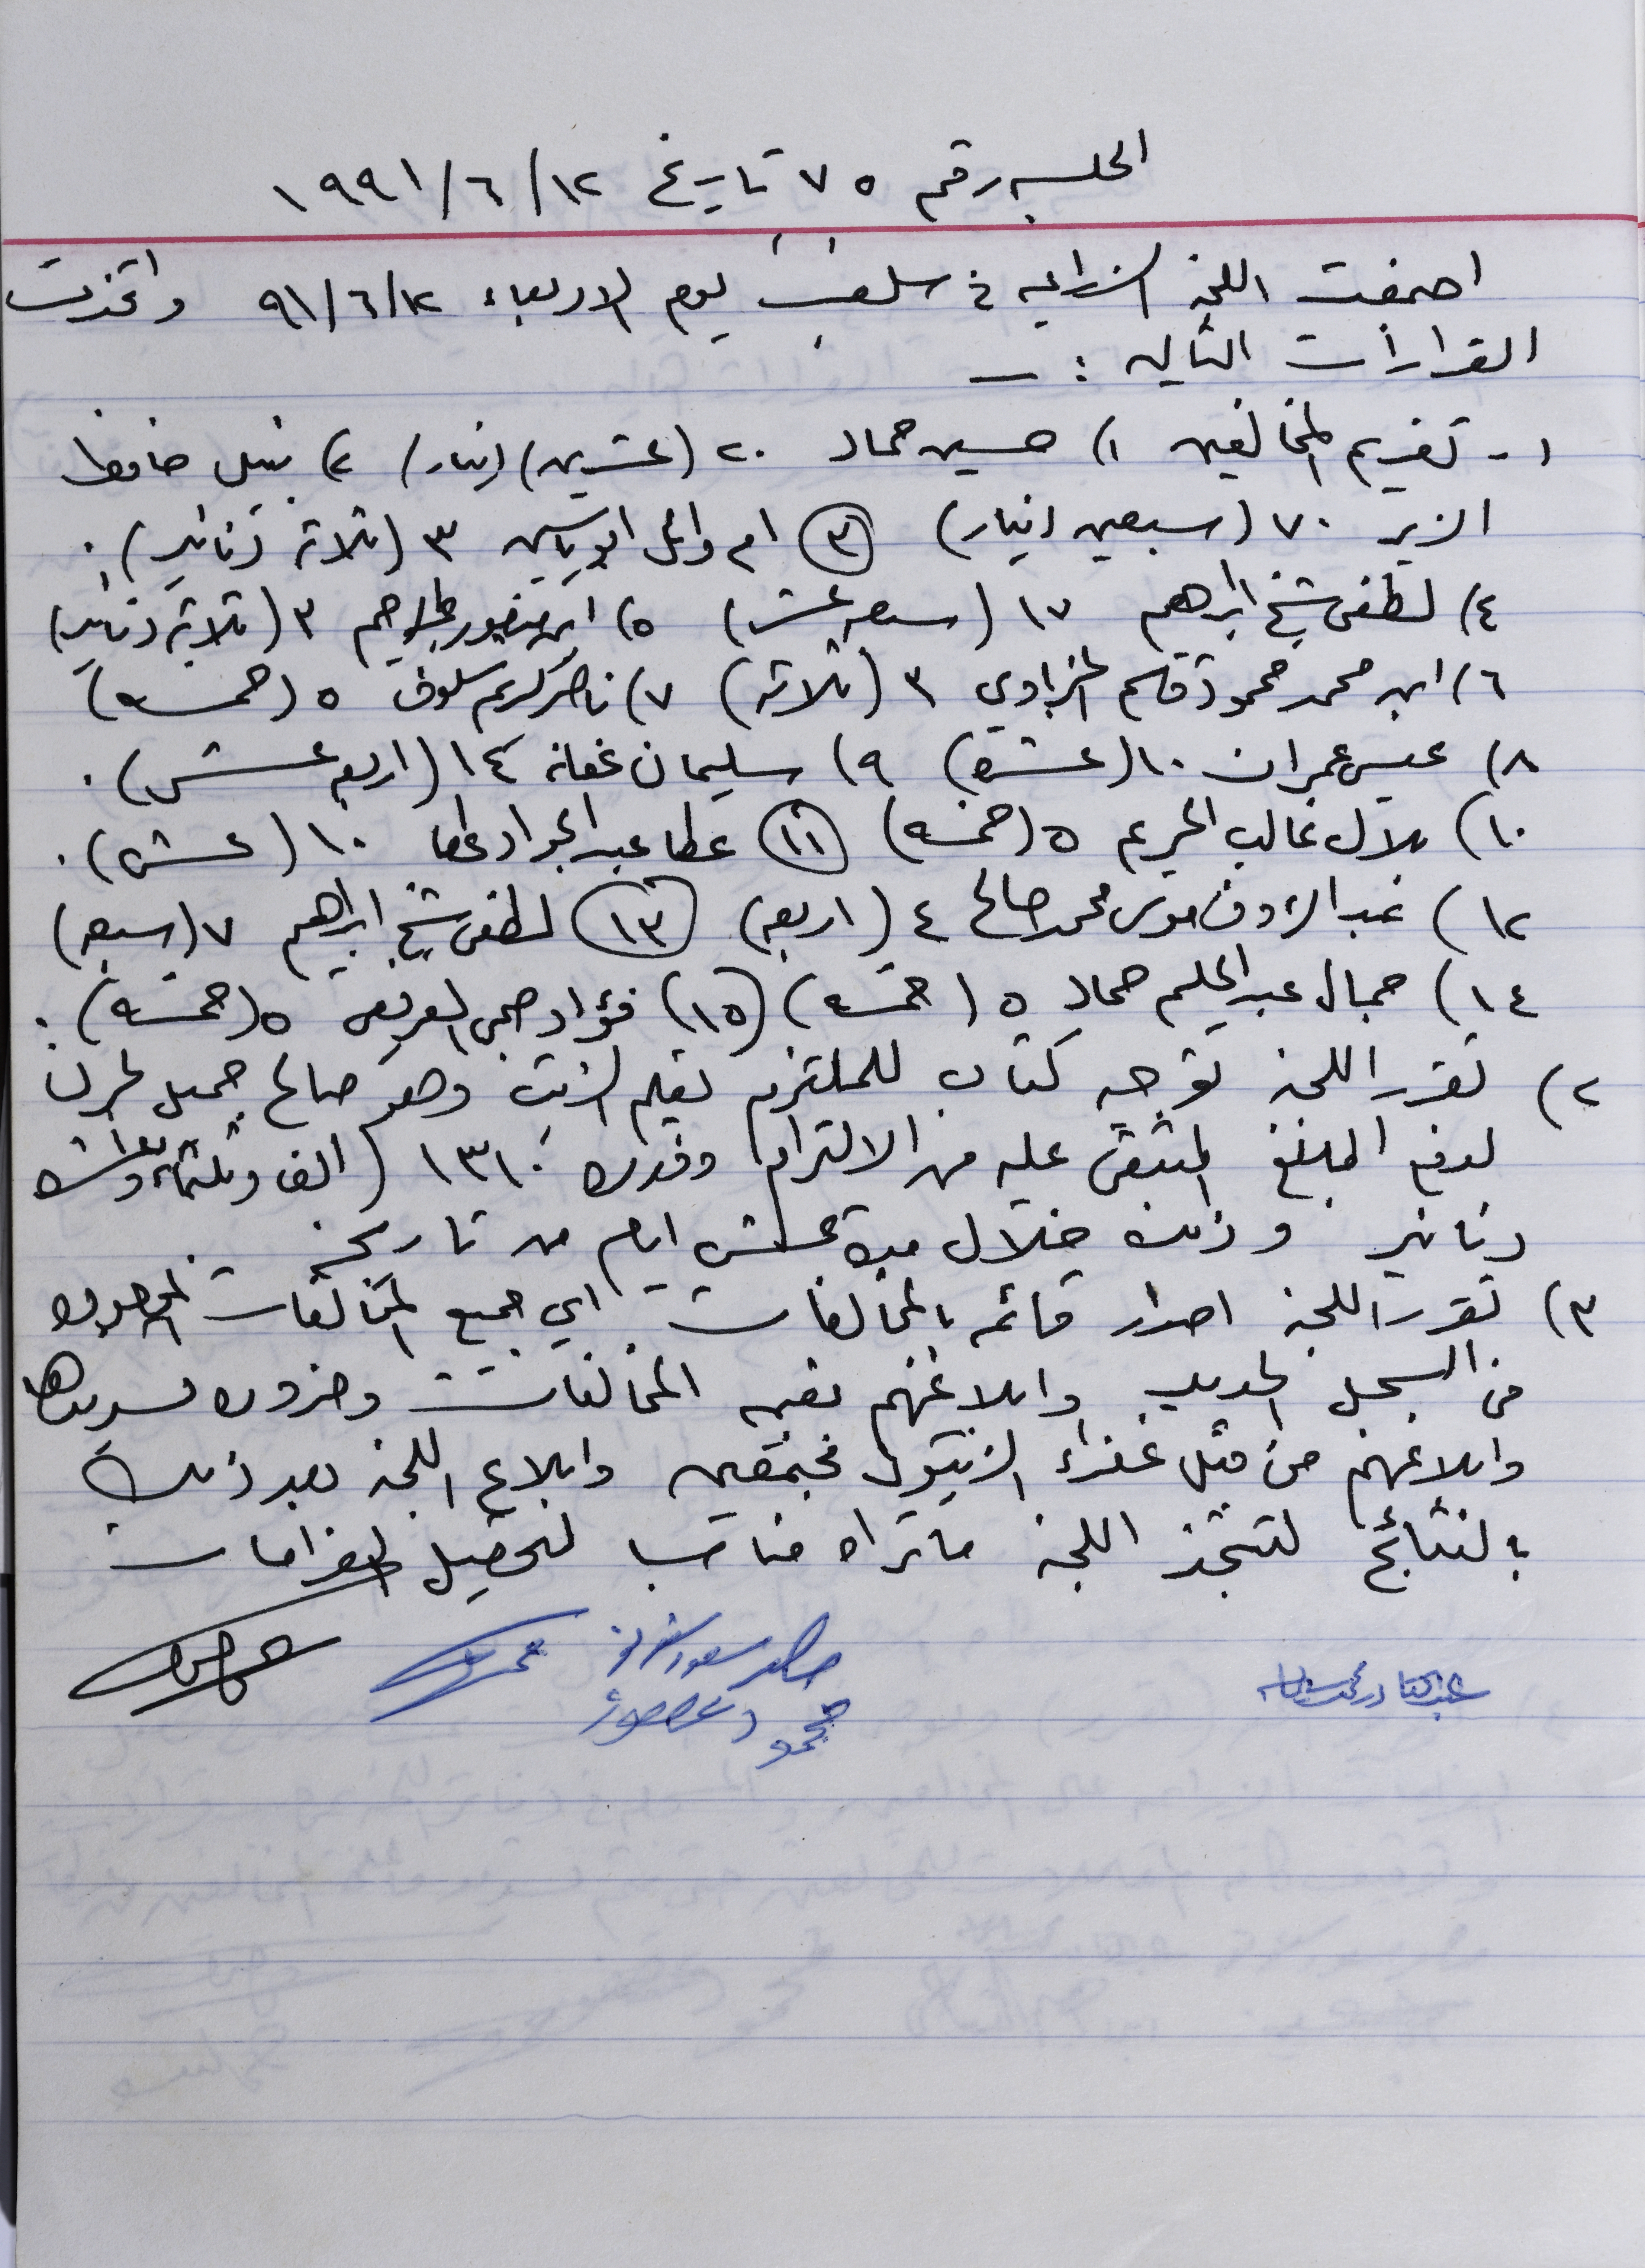 الجلسه رقم ٧٥ تاريخ ١٢/٦/١٩٩١
اجتمعت اللجنة الزراعيه في سلفيت يوم الاربعاء ٩١/٦/١٢ واتخذت
القرارات التاليه : —
١- تغريم المخالفين ١) حسين حماد ٢٠ (عشرين) دينار/ ٢) نبيل حافظ
الزير ٧٠ (سبعين دينار) ٣ ام وائل ابو ياسين ٣ (ثلاثة دنانير).
٤) لطفي شيخ ابراهيم ١٧ (سبعه عشر) ٥) ابن منصور ٣ (ثلاثة دنانير)
٦) ابن محمد محمود قاسم ٣ (ثلاثه) ٧) ناصر كريم سلوف ٥ (خمسه)
٨) عيسى عمران ١٠ (عشره) ٩) سليمان عفانه ١٤ (اربعه عشر).
١٠) بلال غالب ٥ (خمسه) ١١ عطا عبد الجواد عطا ١٠ (عشره).
١٢) عبد الرؤوف موسى محمد صالح ٤ (اربعه) ١٣ لطفي شيخ ابراهيم ٧ (سبعه)
١٤) جمال عبد الحليم حماد ٥ (خمسه) (١٥) فؤاد ٥ (خمسه).
٢) تقرر اللجنة توجيه كتاب للملتزم وهو صالح جميل
لدفع المبلغ المتبقي عليه من الالتزام وقدره ١٣١٠ (الف وثلثمائة وعشره
دنانير وذلك خلال مدة عشرة ايام من تاريخه
٣) تقرر اللجنة اصدار قائمه بالمخالفات اي جميع المخالفات الموجوده
في السجل الجديد وابلاغهم بقيمه المخالفات وضروره تسديدها
وابلاغهم من قبل خفراء الزيتون مجتمعين وابلاغ اللجنة بعد ذلك
بالنتائج لتتخذ اللجنة ما تراه مناسبا لتحصيل الغرامات